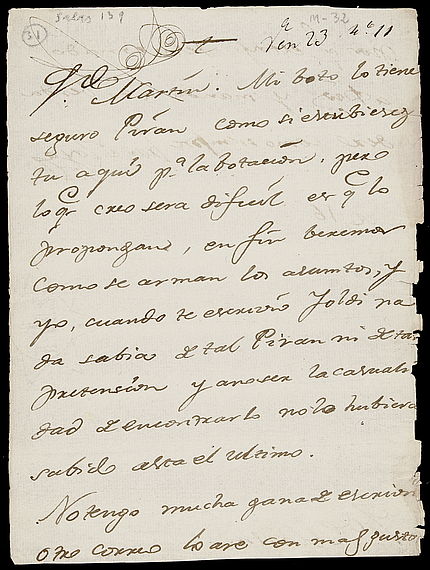 31
M-32
Ven.ª 23 4.º 11
Martin. Mi boto lo tiene
seguro Pirán como si estubieses
tu aquí p.ª la botación, pero
lo q.e creo sera dificil es q.e lo
propongan, en fin beremos
como se arman los asuntos, y
yo, cuando te escrivió Joldi na
da sabia de tal Piran ni de tal
pretensión y a no ser la casuali
dad de encontrarlo no lo hubiera
sabido asta el ultimo.
No tengo mucha gana de escrivir
otro correo lo are con mas gusto